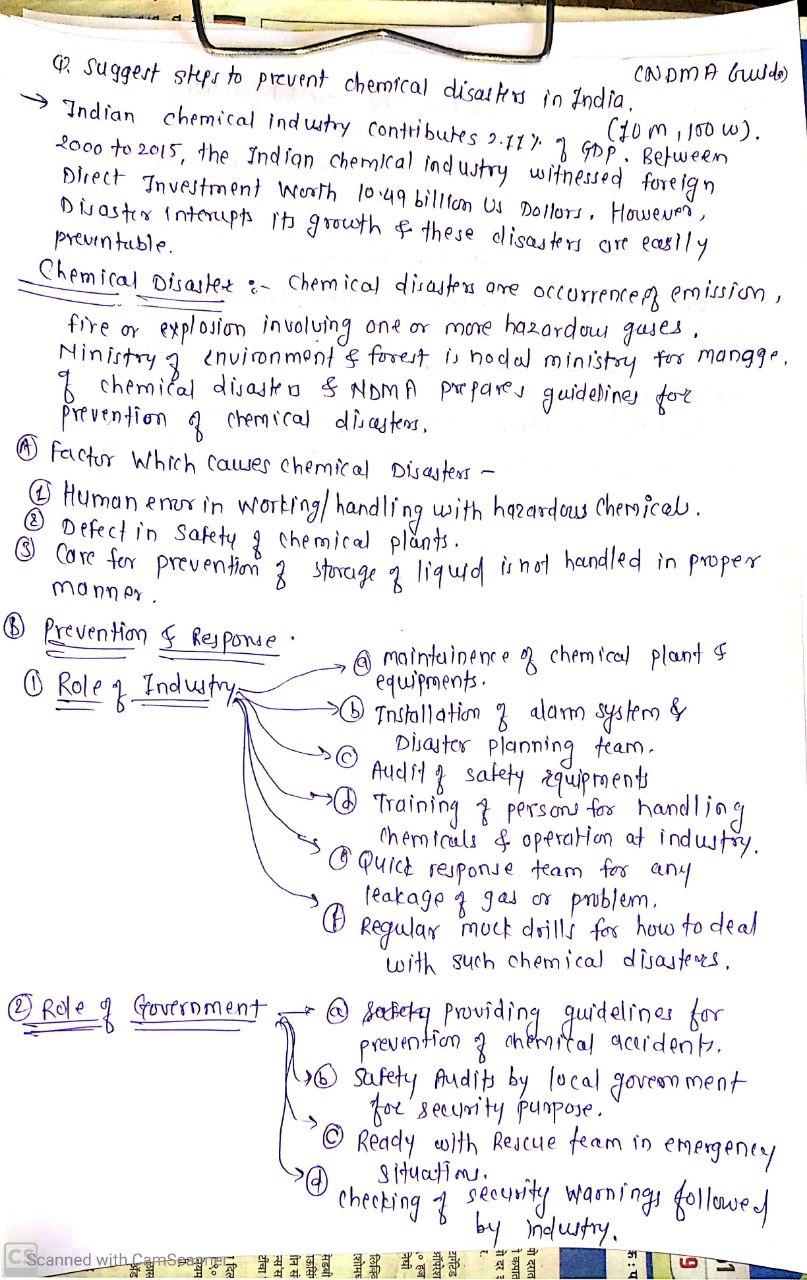 Q. Suggest steps to prevent chemical disasters in India. (NDMA Guide)
(10 m, 150 w).
→ Indian chemical industry contributes 2.11% of GDP. Between
2000 to 2015, the Indian chemical industry witnessed foreign
Direct Investment worth 10.49 billion US Dollors. However,
Disaster interupts its growth & these disasters are easily
preventable.
Chemical Disaster :- Chemical disasters are occurrence of emission,
fire or explosion involving one or more hazardous gases.
Ministry of environment & forest is nodal ministry for manage.
of chemical disasters & NDMA prepares guidelines for
prevention of chemical disasters.
Ⓐ Factor Which causes chemical Disasters -
① Human error in working/handling with hazardous chemical.
② Defect in safety of chemical plants.
③ Care for prevention of storage of liquid is not handled in proper
manner.
Ⓑ Prevention & Response.
① Role of Industry
→ ⓐ maintainence of chemical plant &
equipments.
→ ⓑ Installation of alarm system &
Disaster planning team.
→ ⓒ Audit of safety equipments
→ ⓓ Training of persons for handling
chemicals & operation at industry.
→ ⓔ Quick response team for any
leakage of gas or problem.
→ ⓕ Regular mock drills for how to deal
with such chemical disasters.
② Role of Government
→ ⓐ Safety providing guidelines for
prevention of chemical accidents.
→ ⓑ Safety Audits by local government
for security purpose.
→ ⓒ Ready with Rescue team in emergency
situations.
→ ⓓ checking of security warnings followed
by industry.
CS Scanned with CamScanner